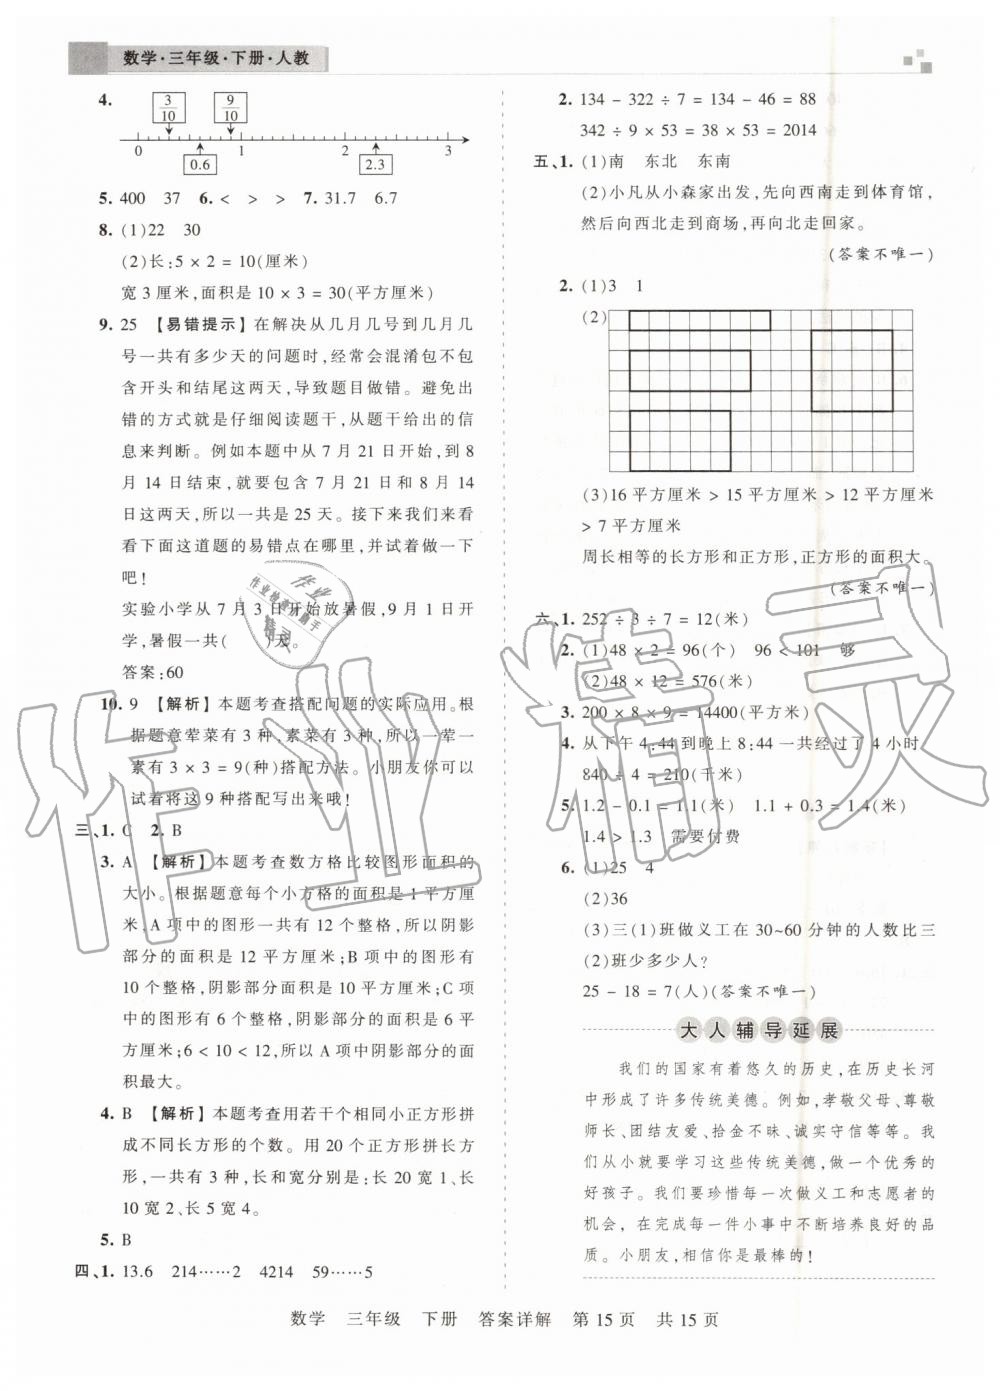 数学·三年级·下册·人教
4.
3/10
9/10
0 1 2 3
0.6
2.3
5. 400 37 6. < > > 7. 31.7 6.7
8. (1)22 30
(2)长:5 × 2 = 10(厘米)
宽 3 厘米,面积是 10 × 3 = 30(平方厘米)
9. 25 【易错提示】在解决从几月几号到几月几
号一共有多少天的问题时,经常会混淆包不包
含开头和结尾这两天,导致题目做错。避免出
错的方式就是仔细阅读题干,从题干给出的信
息来判断。例如本题中从 7 月 21 日开始,到 8
月 14 日结束,就要包含 7 月 21 日和 8 月 14
日这两天,所以一共是 25 天。接下来我们来看
看下面这道题的易错点在哪里,并试着做一下
吧!
实验小学从 7 月 3 日开始放暑假,9 月 1 日开
学,暑假一共( )天。
答案:60
10. 9 【解析】本题考查搭配问题的实际应用。根
据题意荤菜有 3 种,素菜有 3 种,所以一荤一
素有 3 × 3 = 9(种)搭配方法。小朋友你可以
试着将这 9 种搭配写出来哦!
三、1. C 2. B
3. A 【解析】本题考查数方格比较图形面积的
大小。根据题意每个小方格的面积是 1 平方厘
米,A 项中的图形一共有 12 个整格,所以阴影
部分的面积是 12 平方厘米;B 项中的图形有
10 个整格,阴影部分的面积是 10 平方厘米;C 项
中的图形有 6 个整格,阴影部分的面积是 6 平
方厘米;6 < 10 < 12,所以 A 项中阴影部分的面
积最大。
4. B 【解析】本题考查用若干个相同小正方形拼
成不同长方形的个数。用 20 个正方形拼长方
形,一共有 3 种,长和宽分别是:长 20 宽 1、长
10 宽 2、长 5 宽 4。
5. B
四、1. 13.6 214……2 4214 59……5
2. 134 - 322 ÷ 7 = 134 - 46 = 88
342 ÷ 9 × 53 = 38 × 53 = 2014
五、1. (1)南 东北 东南
(2)小凡从小森家出发,先向西南走到体育馆,
然后向西北走到商场,再向北走回家。
(答案不唯一)
2. (1)3 1
(2)
(3)16 平方厘米 > 15 平方厘米 > 12 平方厘米
> 7 平方厘米
周长相等的长方形和正方形,正方形的面积大。
(答案不唯一)
六、1. 252 ÷ 3 ÷ 7 = 12(米)
2. (1)48 × 2 = 96(个) 96 < 101 够
(2)48 × 12 = 576(米)
3. 200 × 8 × 9 = 14400(平方米)
4. 从下午 4:44 到晚上 8:44 一共经过了 4 小时
840 ÷ 4 = 210(千米)
5. 1.2 - 0.1 = 1.1(米) 1.1 + 0.3 = 1.4(米)
1.4 > 1.3 需要付费
6. (1)25 4
(2)36
(3)三(1)班做义工在 30~60 分钟的人数比三
(2)班少多少人?
25 - 18 = 7(人)(答案不唯一)
大人辅导延展
我们的国家有着悠久的历史,在历史长河
中形成了许多传统美德。例如,孝敬父母、尊敬
师长、团结友爱、拾金不昧、诚实守信等等。我
们从小就要学习这些传统美德,做一个优秀的
好孩子。我们要珍惜每一次做义工和志愿者的
机会,在完成每一件小事中不断培养良好的品
质。小朋友,相信你是最棒的!
数学 三年级 下册 答案详解 第 15 页 共 15 页
作业精灵
作业
作业检查小助手
精灵